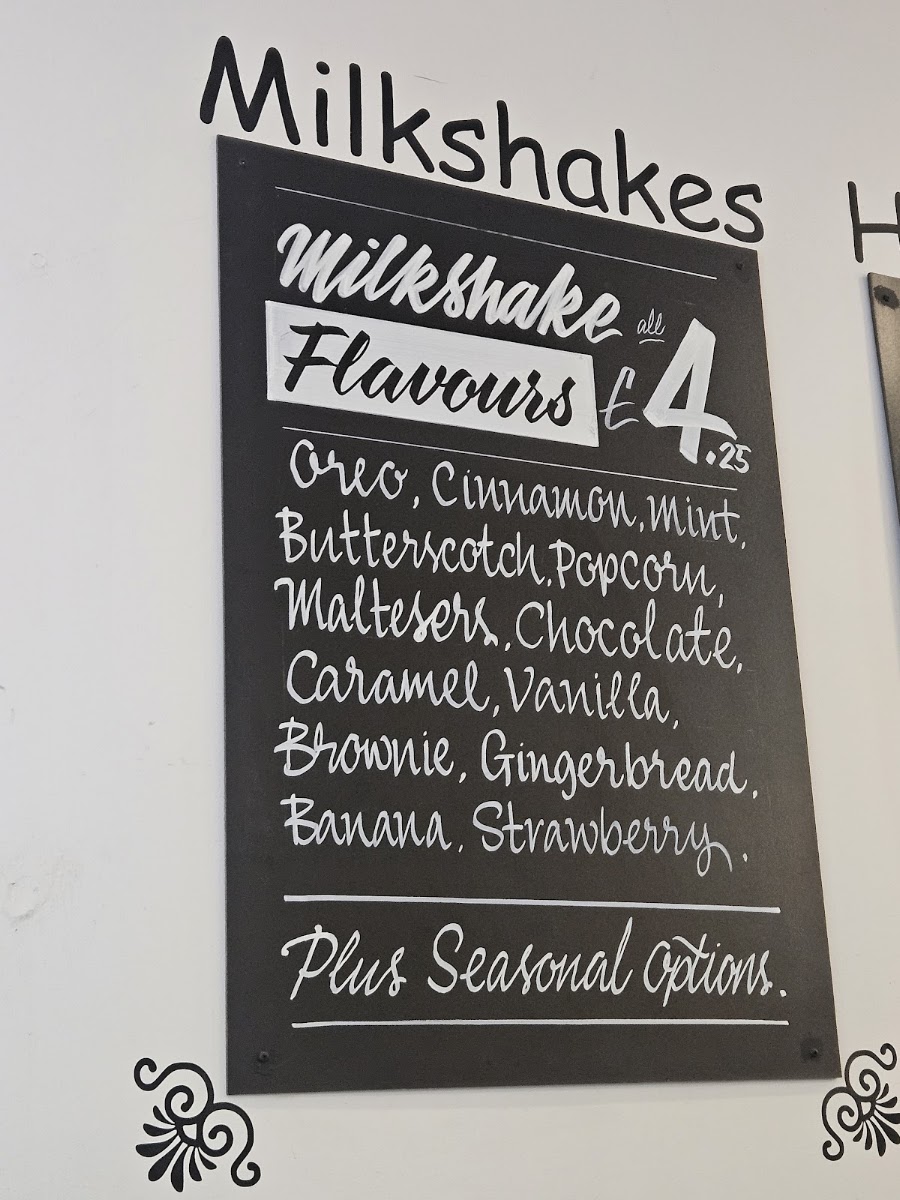 Milkshakes
H
Milkshake
Flavours
all
£4.25
Oreo, Cinnamon, Mint,
Butterscotch, Popcorn,
Maltesers, Chocolate,
Caramel, Vanilla,
Brownie, Gingerbread,
Banana, Strawberry.
Plus Seasonal Options.